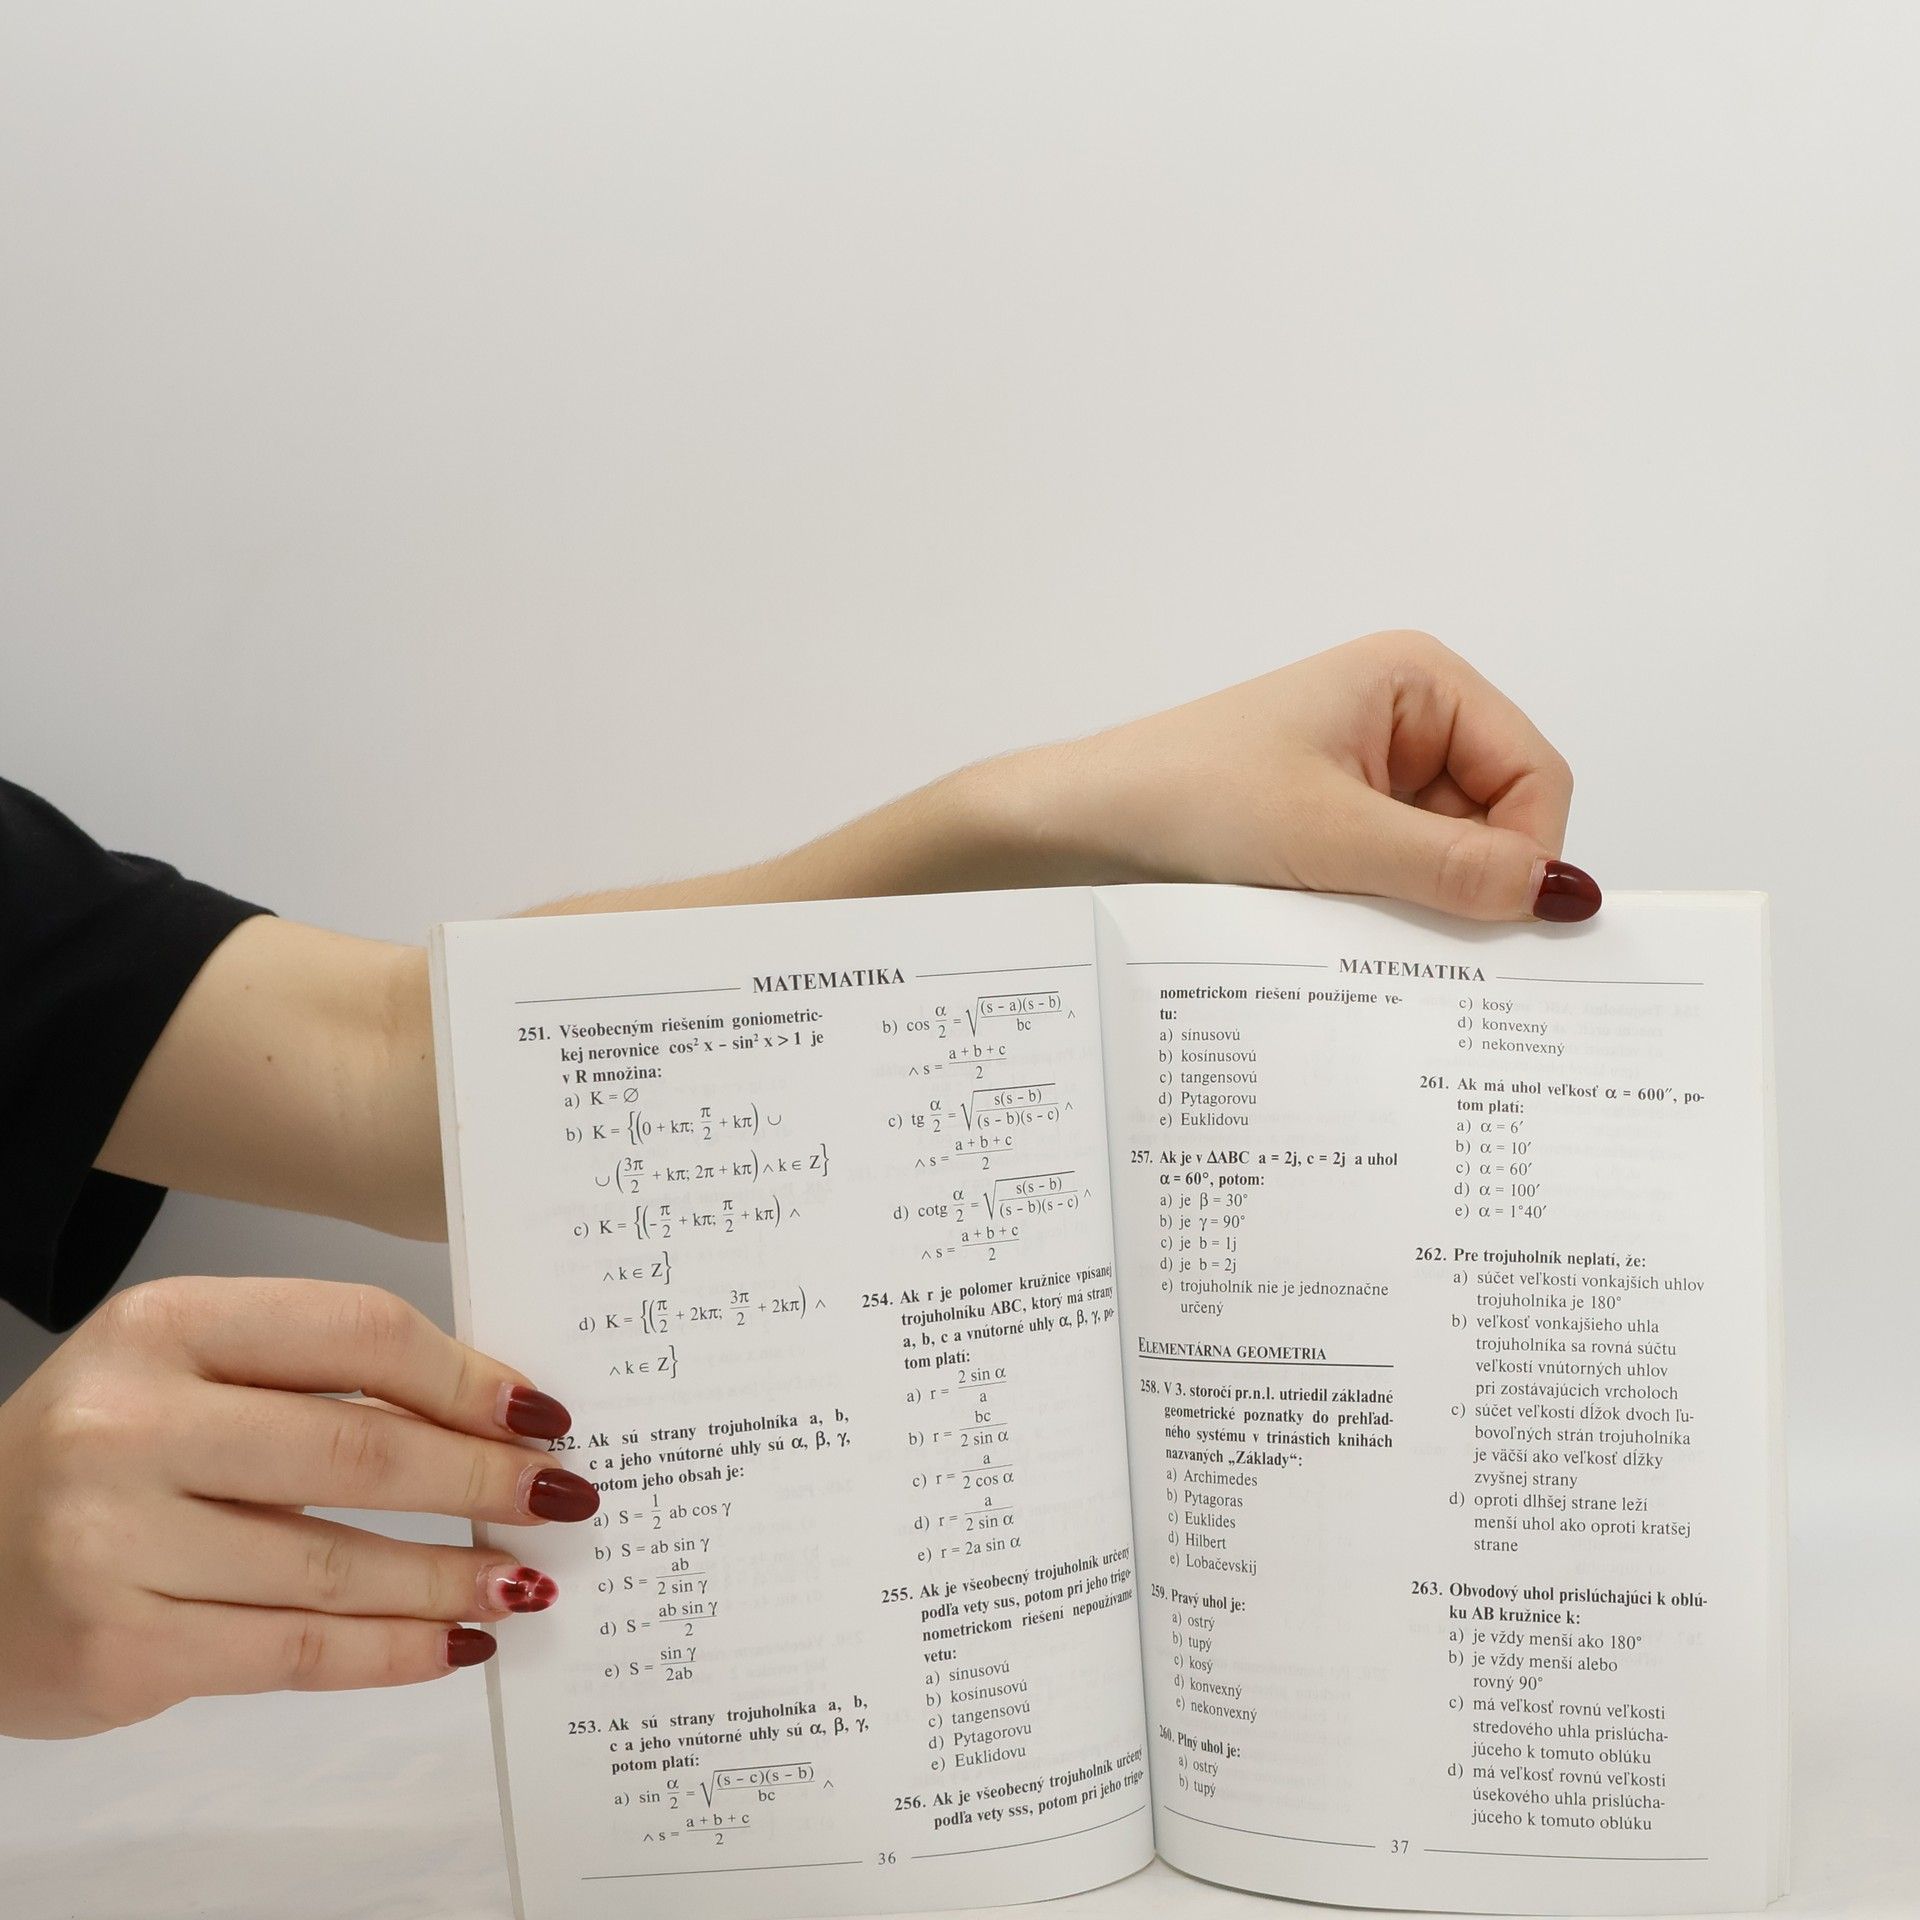 MATEMATIKA
251. Všeobecným riešením goniometric-
kej nerovnice cos² x – sin² x > 1 je
v R množina:
a) K = ∅
b) K = {(0 + kπ; π/2 + kπ) ∪
∪ (3π/2 + kπ; 2π + kπ) ∧ k ∈ Z}
c) K = {(–π/2 + kπ; π/2 + kπ) ∧
∧ k ∈ Z}
d) K = {(π/2 + 2kπ; 3π/2 + 2kπ) ∧
∧ k ∈ Z}
252. Ak sú strany trojuholníka a, b,
c a jeho vnútorné uhly sú α, β, γ,
potom jeho obsah je:
a) S = 1/2 ab cos γ
b) S = ab sin γ
c) S = ab/(2 sin γ)
d) S = (ab sin γ)/2
e) S = sin γ/2ab
253. Ak sú strany trojuholníka a, b,
c a jeho vnútorné uhly sú α, β, γ,
potom platí:
a) sin α/2 = √((s – c)(s – b)/bc) ∧
∧ s = (a + b + c)/2
b) cos α/2 = √((s – a)(s – b)/bc) ∧
∧ s = (a + b + c)/2
c) tg α/2 = √(s(s – b)/((s – b)(s – c))) ∧
∧ s = (a + b + c)/2
d) cotg α/2 = √(s(s – b)/((s – b)(s – c))) ∧
∧ s = (a + b + c)/2
254. Ak r je polomer kružnice vpísanej
trojuholníku ABC, ktorý má strany
a, b, c a vnútorné uhly α, β, γ, po-
tom platí:
a) r = 2 sin α/a
b) r = bc/(2 sin α)
c) r = a/(2 cos α)
d) r = a/(2 sin α)
e) r = 2a sin α
255. Ak je všeobecný trojuholník určený
podľa vety sus, potom pri jeho trigo-
nometrickom riešení nepoužívame
vetu:
a) sínusovú
b) kosínusovú
c) tangensovú
d) Pytagorovu
e) Euklidovu
256. Ak je všeobecný trojuholník určený
podľa vety sss, potom pri jeho trigo-
36
MATEMATIKA
nometrickom riešení použijeme ve-
tu:
a) sínusovú
b) kosínusovú
c) tangensovú
d) Pytagorovu
e) Euklidovu
257. Ak je v ΔABC a = 2j, c = 2j a uhol
α = 60°, potom:
a) je β = 30°
b) je γ = 90°
c) je b = 1j
d) je b = 2j
e) trojuholník nie je jednoznačne
určený
ELEMENTÁRNA GEOMETRIA
258. V 3. storočí pr.n.l. utriedil základné
geometrické poznatky do prehľad-
ného systému v trinástich knihách
nazvaných „Základy“:
a) Archimedes
b) Pytagoras
c) Euklides
d) Hilbert
e) Lobačevskij
259. Pravý uhol je:
a) ostrý
b) tupý
c) kosý
d) konvexný
e) nekonvexný
260. Plný uhol je:
a) ostrý
b) tupý
c) kosý
d) konvexný
e) nekonvexný
261. Ak má uhol veľkosť α = 600″, po-
tom platí:
a) α = 6′
b) α = 10′
c) α = 60′
d) α = 100′
e) α = 1°40′
262. Pre trojuholník neplatí, že:
a) súčet veľkostí vonkajších uhlov
trojuholníka je 180°
b) veľkosť vonkajšieho uhla
trojuholníka sa rovná súčtu
veľkostí vnútorných uhlov
pri zostávajúcich vrcholoch
c) súčet veľkostí dĺžok dvoch ľu-
bovoľných strán trojuholníka
je väčší ako veľkosť dĺžky
zvyšnej strany
d) oproti dlhšej strane leží
menší uhol ako oproti kratšej
strane
263. Obvodový uhol prislúchajúci k oblú-
ku AB kružnice k:
a) je vždy menší ako 180°
b) je vždy menší alebo
rovný 90°
c) má veľkosť rovnú veľkosti
stredového uhla prislúcha-
júceho k tomuto oblúku
d) má veľkosť rovnú veľkosti
úsekového uhla prislúcha-
júceho k tomuto oblúku
37